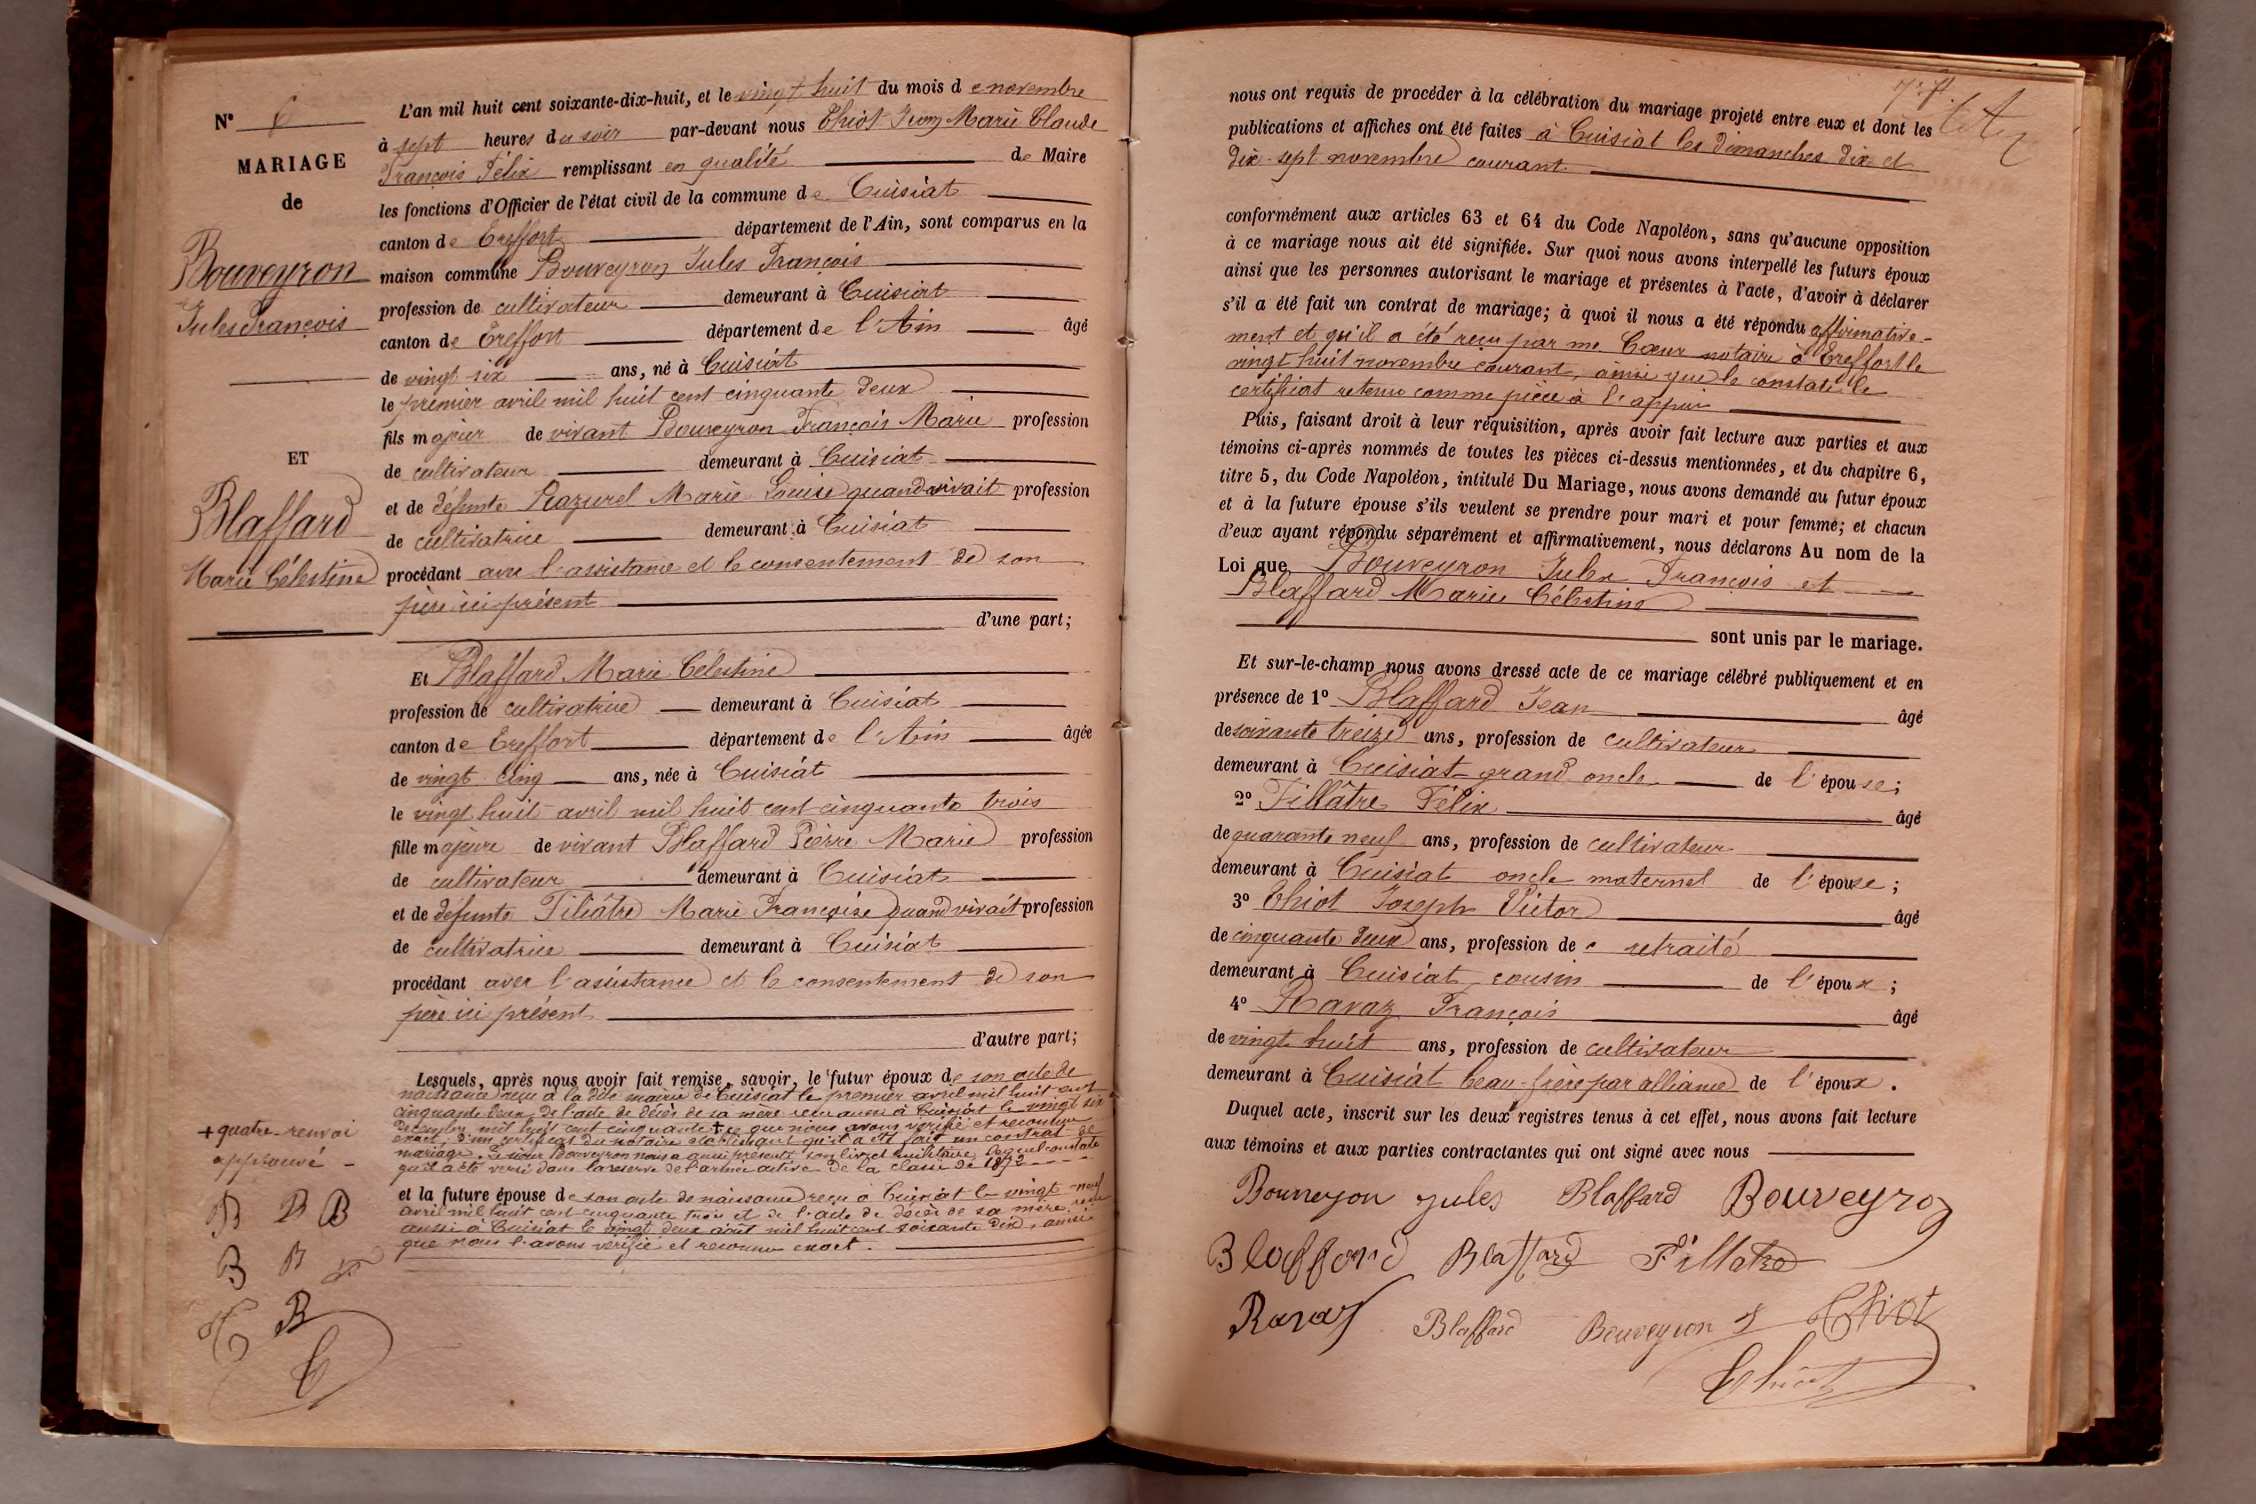 N° 6
MARIAGE
de
Bouveyron
Jules François
ET
Blaffard
Marie Célestine
+ quatre renvoi
approuvé -
B B B
B B
B
L'an mil huit cent soixante-dix-huit, et le vingt huit du mois de novembre
à sept heures du soir par-devant nous Thiot Marie Claude
François Félix remplissant en qualité de Maire
les fonctions d'Officier de l'état civil de la commune de Cuisiat
canton de Treffort département de l'Ain, sont comparus en la
maison commune Bouveyron Jules François
profession de cultivateur demeurant à Cuisiat
canton de Treffort département de l'Ain âgé
de vingt six ans, né à Cuisiat
le premier avril mil huit cent cinquante deux
fils majeur de vivant Bouveyron François Marie profession
de cultivateur demeurant à Cuisiat
et de défunte Razurel Marie Louise quand vivait profession
de cultivatrice demeurant à Cuisiat
procédant avec l'assistance et le consentement de son
père ici présent
d'une part;
Et Blaffard Marie Célestine
profession de cultivatrice demeurant à Cuisiat
canton de Treffort département de l'Ain âgée
de vingt cinq ans, née à Cuisiat
le vingt huit avril mil huit cent cinquante trois
fille majeure de vivant Blaffard Pierre Marie profession
de cultivateur demeurant à Cuisiat
et de défunte Tillâtre Marie Françoise quand vivait profession
de cultivatrice demeurant à Cuisiat
procédant avec l'assistance et le consentement de son
père ici présent
d'autre part;
Lesquels, après nous avoir fait remise, savoir, le futur époux de son acte de
naissance reçu à la dite mairie de Cuisiat le premier avril mil huit cent
cinquante deux, de l'acte de décès de sa mère reçu aussi à Cuisiat le vingt six
décembre mil huit cent cinquante + ce que nous avons vérifié et reconnu
exact, d'un certificat du notaire établissant qu'il a été fait un contrat de
mariage. Le sieur Bouveyron nous a aussi présenté son livret militaire lequel constate
qu'il a été versé dans la réserve de l'armée active de la classe de 1872
et la future épouse de son acte de naissance reçu à Cuisiat le vingt neuf
avril mil huit cent cinquante trois et de l'acte de décès de sa mère reçu
aussi à Cuisiat le vingt deux août mil huit cent soixante dix, ainsi
que nous l'avons vérifié et reconnu exact.
nous ont requis de procéder à la célébration du mariage projeté entre eux et dont les
publications et affiches ont été faites à Cuisiat les dimanches dix et
dix-sept novembre courant
conformément aux articles 63 et 64 du Code Napoléon, sans qu'aucune opposition
à ce mariage nous ait été signifiée. Sur quoi nous avons interpellé les futurs époux
ainsi que les personnes autorisant le mariage et présentes à l'acte, d'avoir à déclarer
s'il a été fait un contrat de mariage; à quoi il nous a été répondu affirmative-
ment et qu'il a été reçu par me Cœur notaire à Treffort le
vingt huit novembre courant, ainsi que le constate le
certificat retenu comme pièce à l'appui
Puis, faisant droit à leur réquisition, après avoir fait lecture aux parties et aux
témoins ci-après nommés de toutes les pièces ci-dessus mentionnées, et du chapitre 6,
titre 5, du Code Napoléon, intitulé Du Mariage, nous avons demandé au futur époux
et à la future épouse s'ils veulent se prendre pour mari et pour femme; et chacun
d'eux ayant répondu séparément et affirmativement, nous déclarons Au nom de la
Loi que Bouveyron Jules François et
Blaffard Marie Célestine
sont unis par le mariage.
Et sur-le-champ nous avons dressé acte de ce mariage célébré publiquement et en
présence de 1° Blaffard Jean âgé
de soixante treize ans, profession de cultivateur
demeurant à Cuisiat grand oncle de l'épouse;
2° Tillâtre Félix âgé
de quarante neuf ans, profession de cultivateur
demeurant à Cuisiat oncle maternel de l'épouse;
3° Thiot Joseph Victor âgé
de cinquante deux ans, profession de retraité
demeurant à Cuisiat, cousin de l'époux;
4° Ravaz François âgé
de vingt huit ans, profession de cultivateur
demeurant à Cuisiat beau-frère par alliance de l'époux.
Duquel acte, inscrit sur les deux registres tenus à cet effet, nous avons fait lecture
aux témoins et aux parties contractantes qui ont signé avec nous
Bouveyron Jules Blaffard Bouveyron
Blaffard Blaffard Tillatre
Ravaz Blaffard Bouveyron Thiot
Thiot